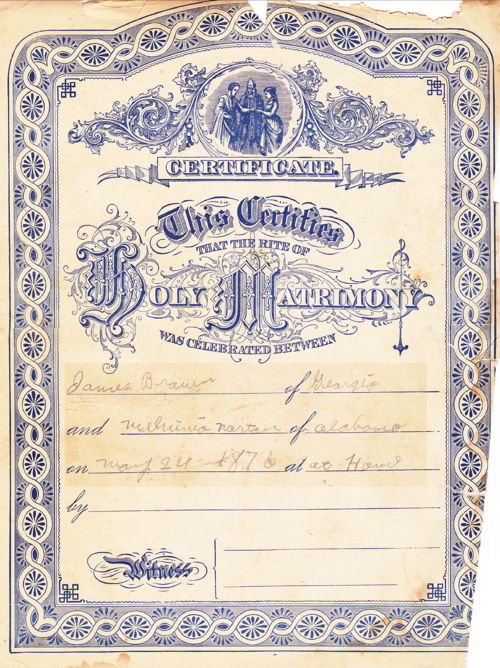 CERTIFICATE.
This Certifies
THAT THE RITE OF
HOLY MATRIMONY
WAS CELEBRATED BETWEEN
James of Georgia
and Norton of alabama
on may 24 1876 at at
by
Witness